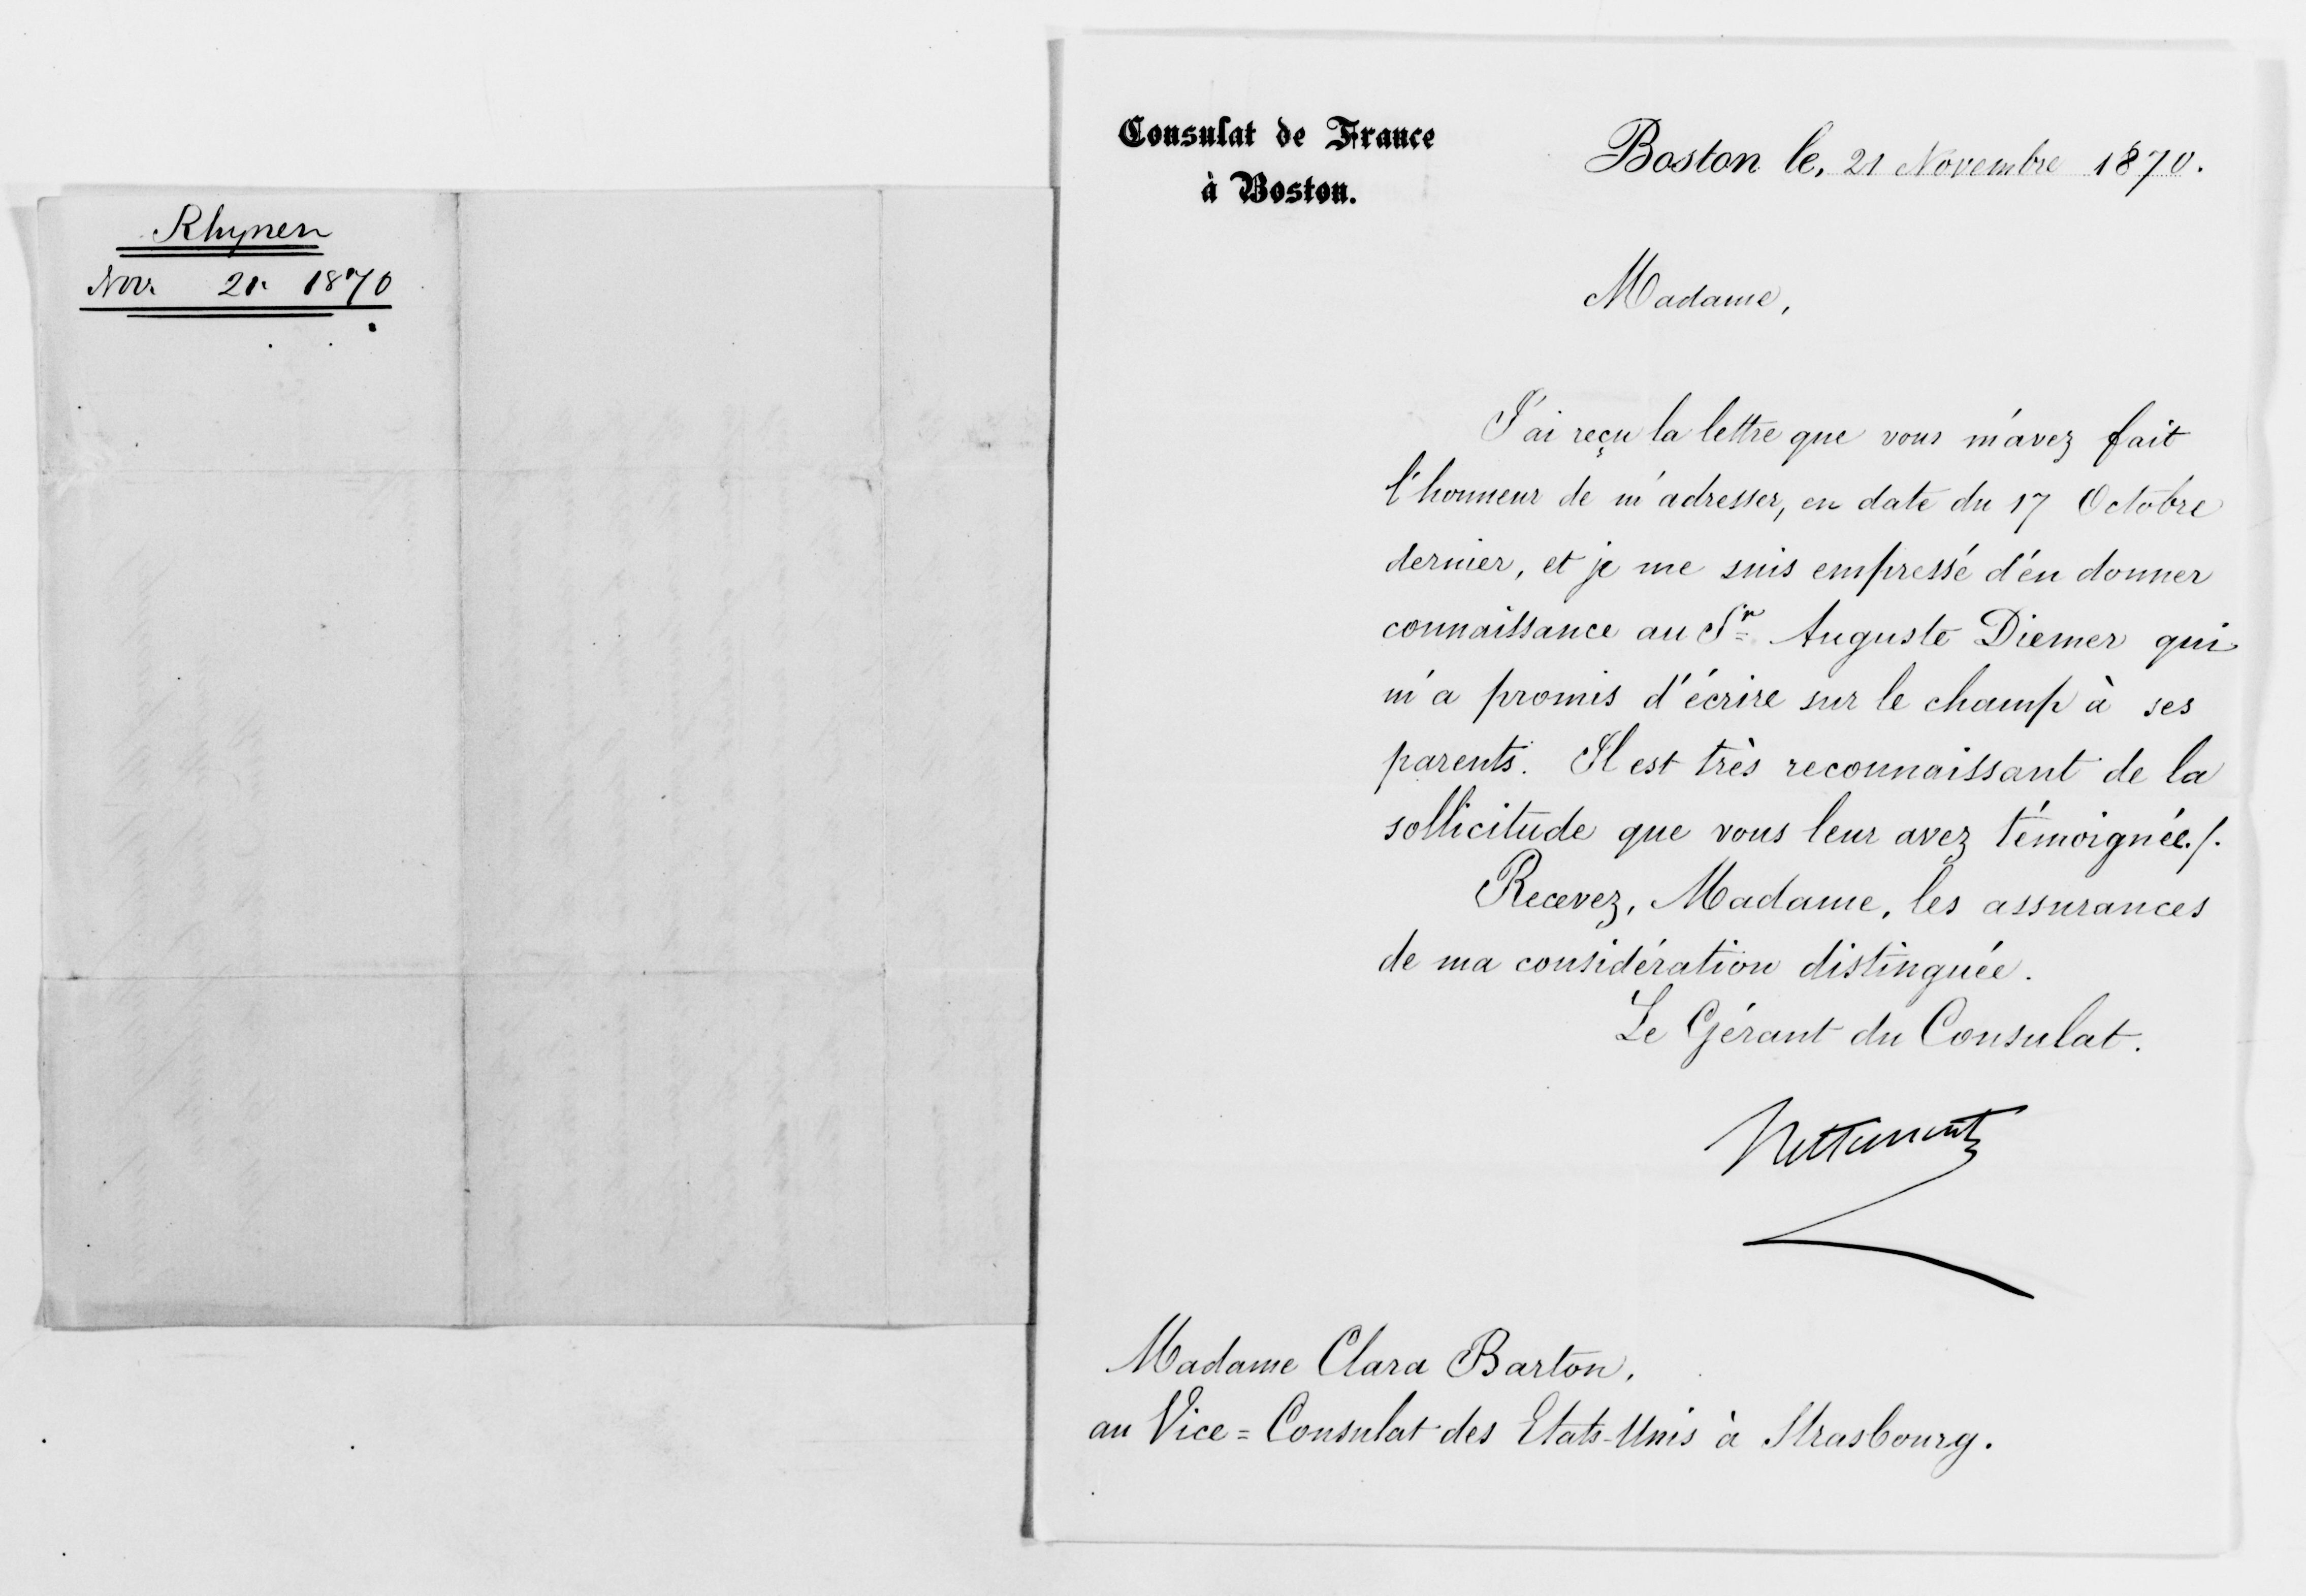 Rhynen
Nov. 21. 1870
Consulat de France
à Boston.
Boston le, 21 Novembre 1870.
Madame,
J'ai reçu la lettre que vous m'avez fait
l'honneur de m'adresser, en date du 17 Octobre
dernier, et je me suis empressé d'en donner
connaissance au Sr Auguste Diemer qui
m'a promis d'écrire sur le champ à ses
parents. Il est très reconnaissant de la
sollicitude que vous leur avez témoignée./.
Recevez, Madame, les assurances
de ma considération distinguée.
Le Gérant du Consulat.
Nettement
Madame Clara Barton,
au Vice=Consulat des Etats-Unis à Strasbourg.